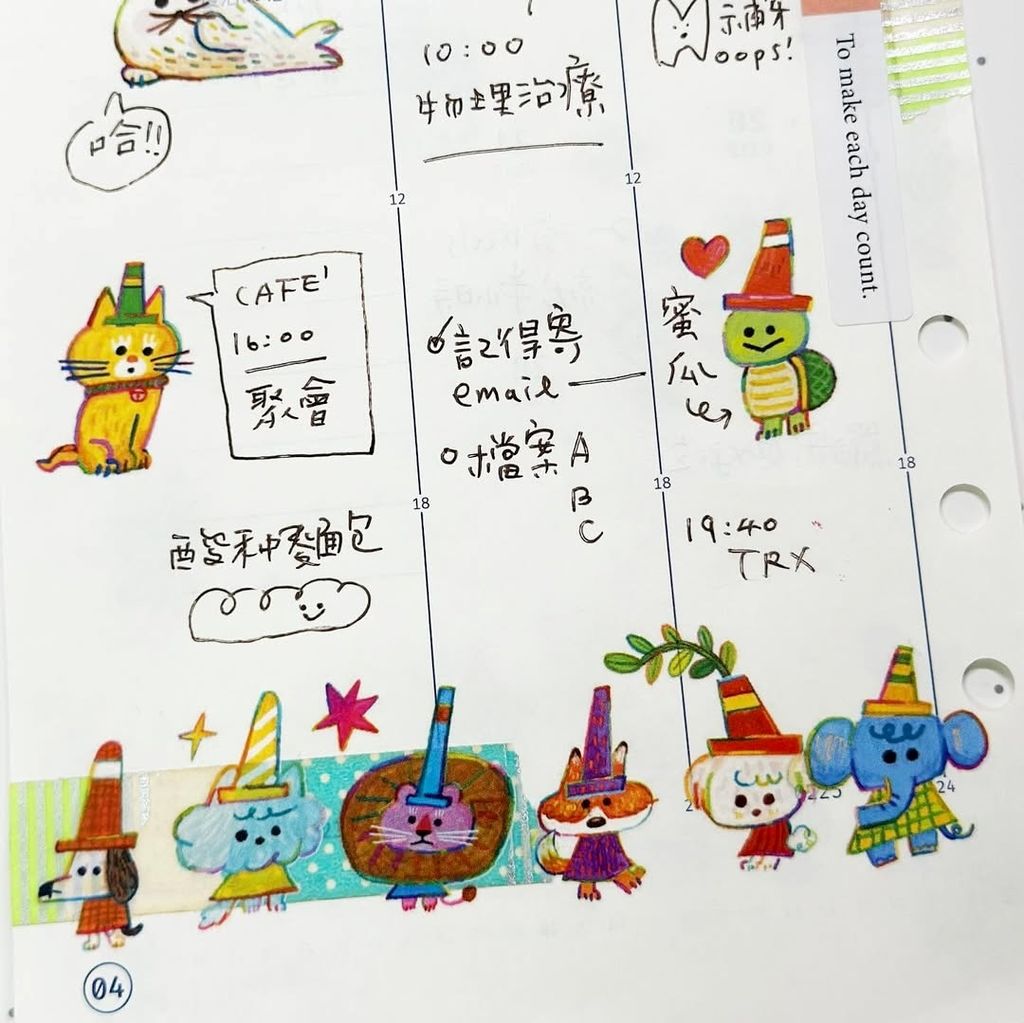 哈!!
CAFE'
16:00
聚會
酸種麵包
10:00
物理治療
12
記得寄
email
檔案 A
B
C
18
補牙
oops!
12
蜜
瓜
18
19:40
TRX
18
To make each day count.
23
24
04